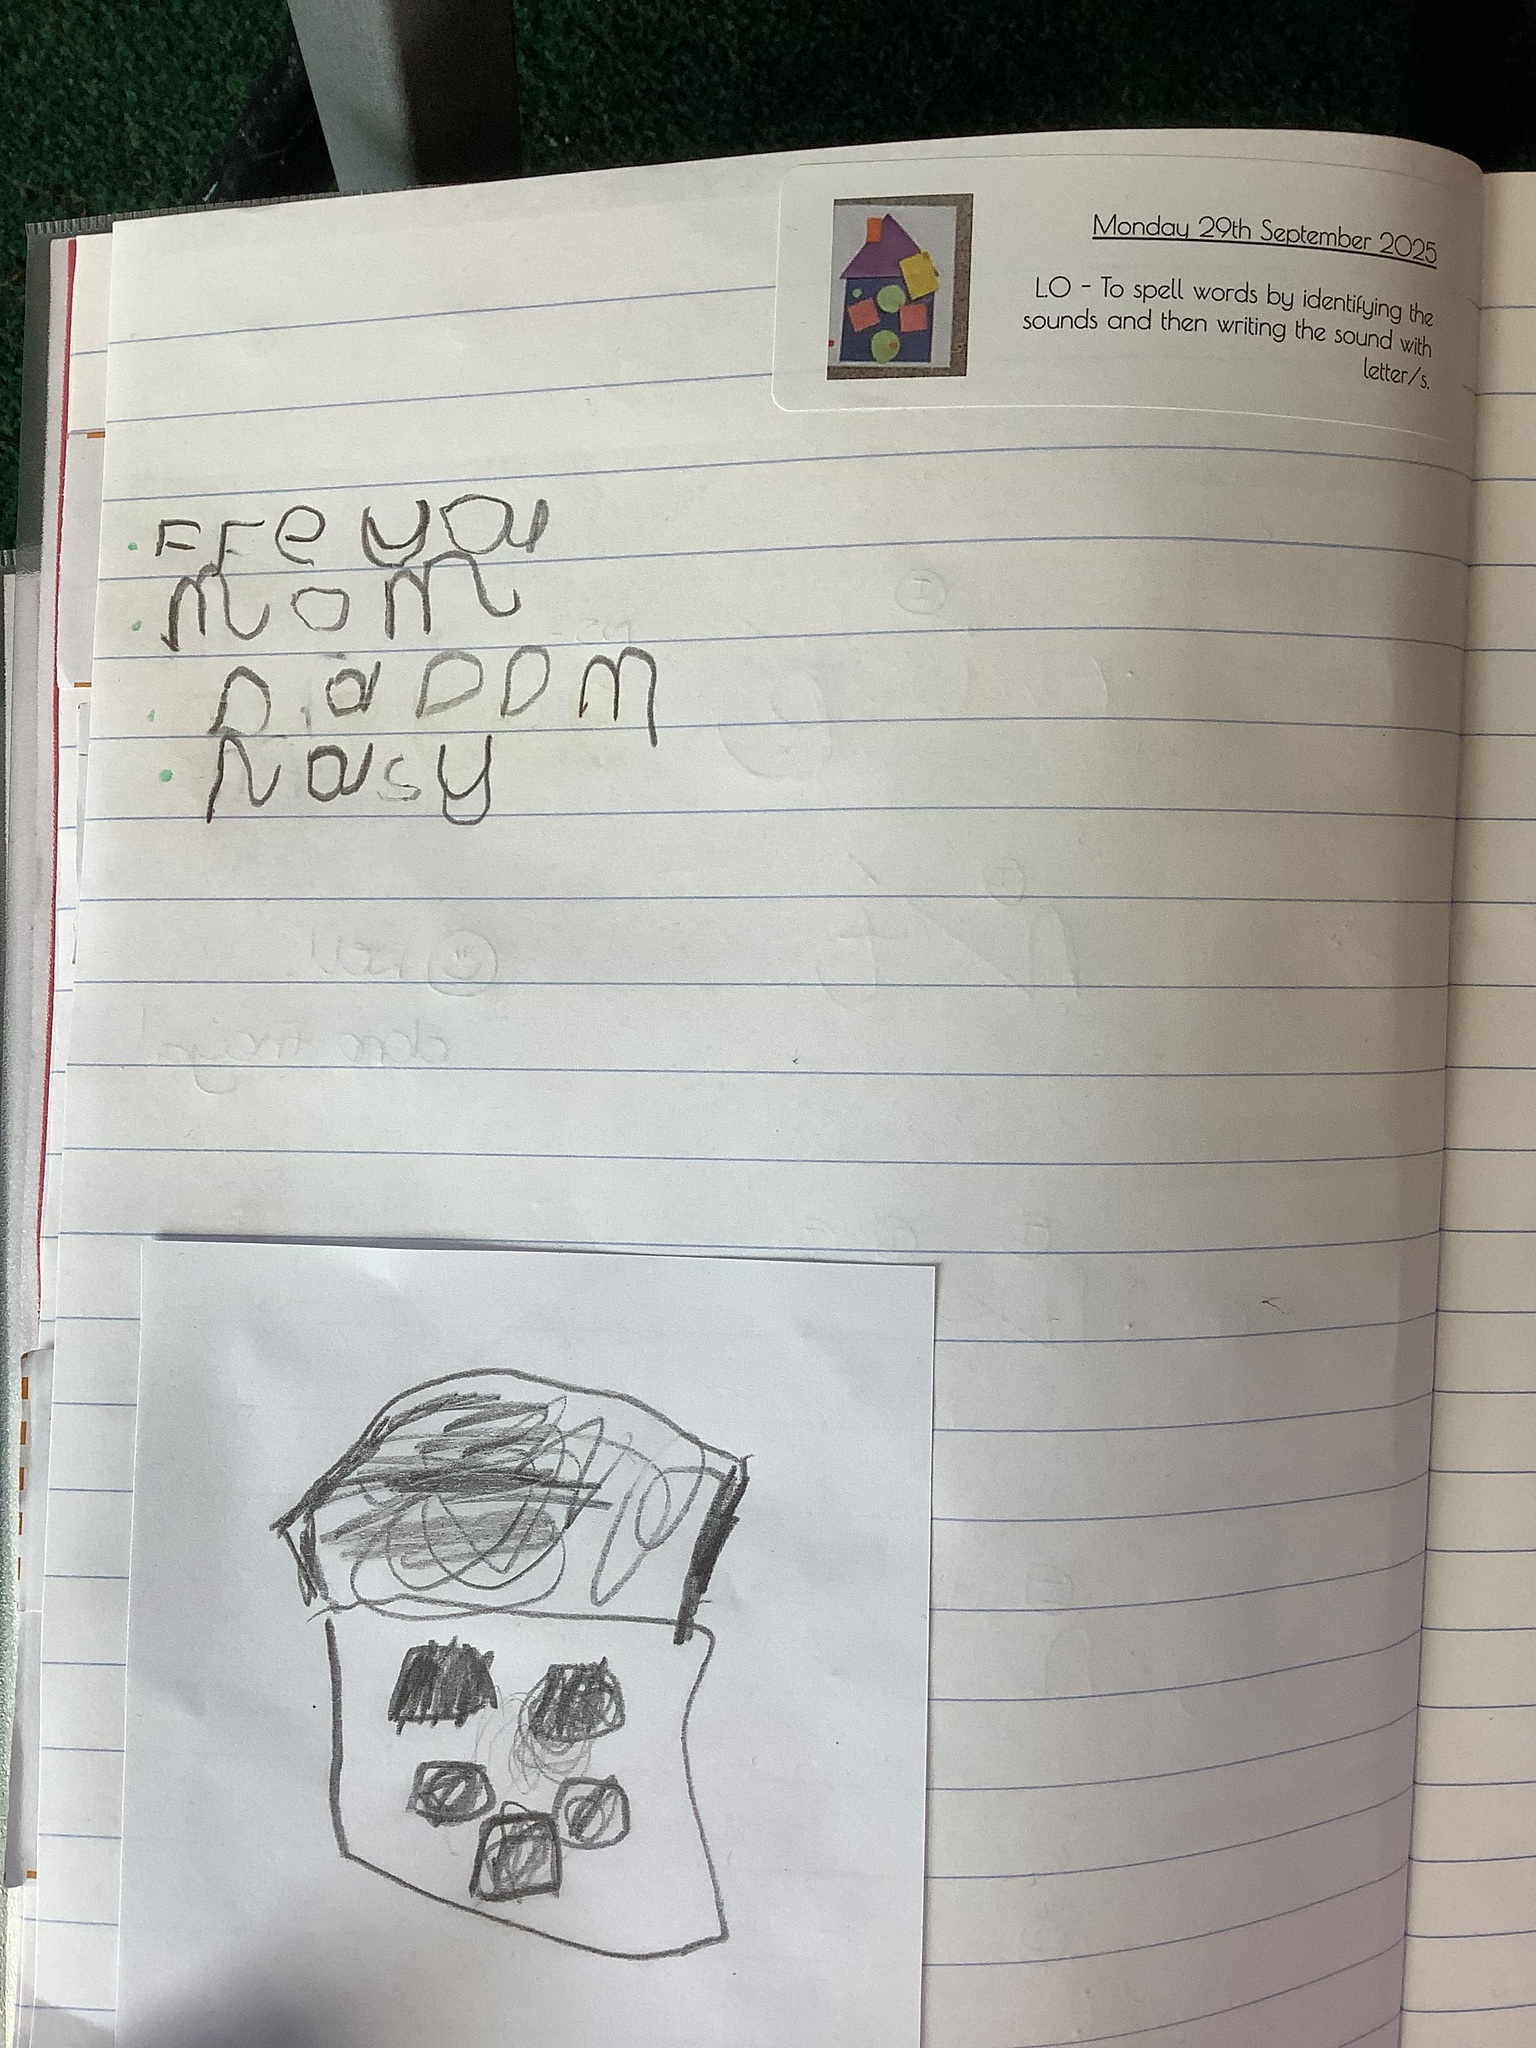 Monday 29th September 2025
L.O - To spell words by identifying the
sounds and then writing the sound with
letter/s.
FFe ya
mom
DaDDM
Nasy